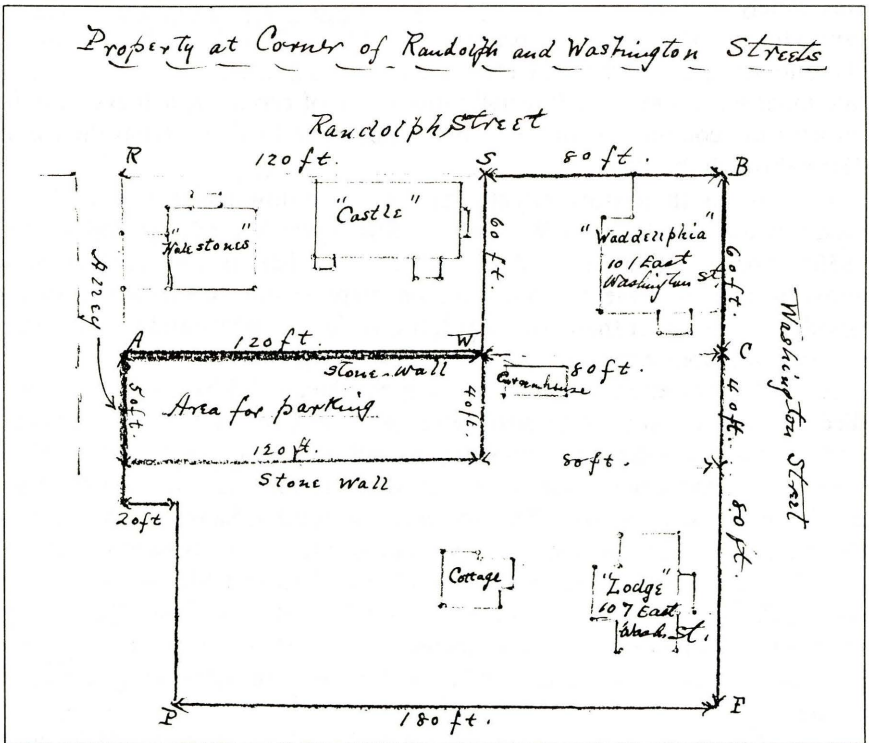 Property at Corner of Randolph and Washington Streets
Randolph Street
R
120 ft.
S
80 ft.
B
"Halestones"
"Castle"
60 ft.
"Waddellphia"
101 East
Washington St.
60 ft.
Alley
A
120 ft.
W
C
Stone Wall
80 ft.
Washington Street
50 ft.
Area for parking
40 ft.
40 ft.
120 ft.
80 ft.
Stone Wall
20 ft
80 ft.
Cottage
"Lodge"
107 East
Wash. St.
P
180 ft.
F